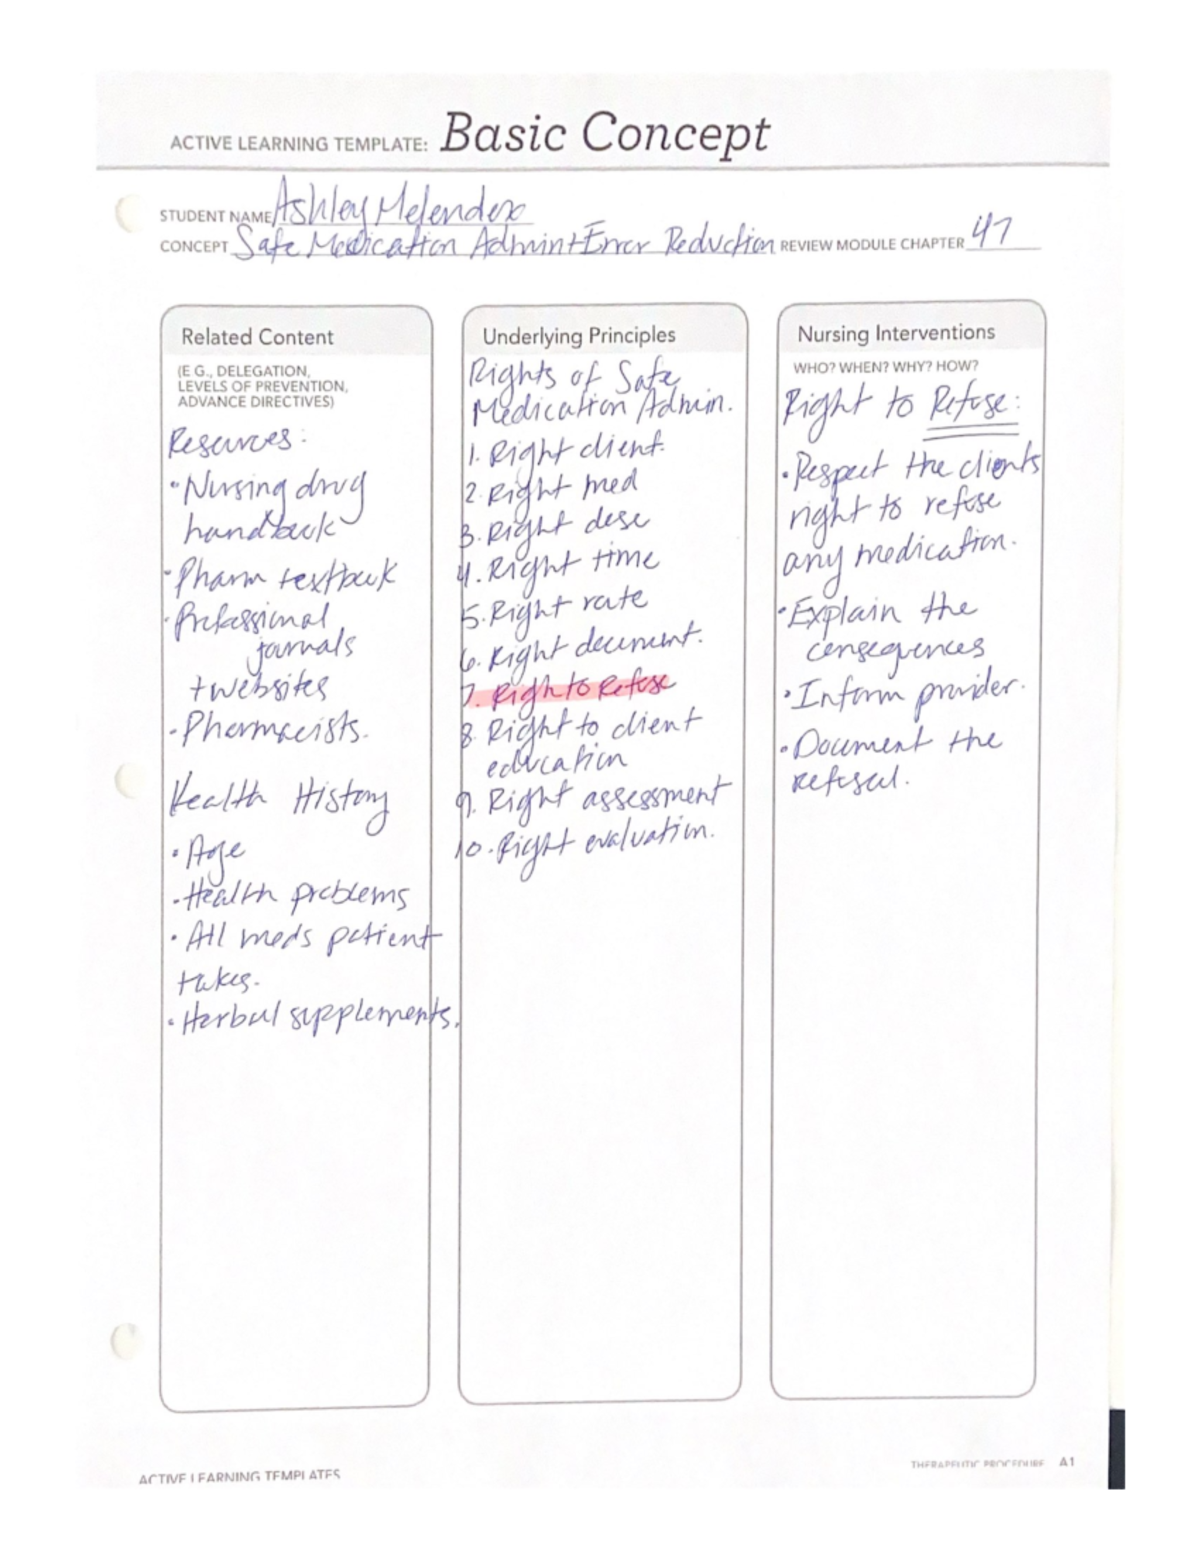 ACTIVE LEARNING TEMPLATE: Basic Concept
STUDENT NAME Ashley Melendez
CONCEPT Safe Medication Admin + Error Reduction REVIEW MODULE CHAPTER 47
Related Content
(E G., DELEGATION,
LEVELS OF PREVENTION,
ADVANCE DIRECTIVES)
Resources:
• Nursing drug
handbook
• Pharm textbook
• Professional
journals
+ websites
• Pharmacists.
Health History
• Age
• Health problems
• All meds patient
takes.
• Herbal supplements.
Underlying Principles
Rights of Safe
Medication Admin.
1. Right client.
2. Right med
3. Right dose
4. Right time
5. Right rate
6. Right document.
7. Right to Refuse
8. Right to client
education
9. Right assessment
10. Right evaluation.
Nursing Interventions
WHO? WHEN? WHY? HOW?
Right to Refuse:
• Respect the clients
right to refuse
any medication.
• Explain the
consequences
• Inform provider.
• Document the
refusal.
ACTIVE LEARNING TEMPLATES
THERAPEUTIC PROCEDURE A1